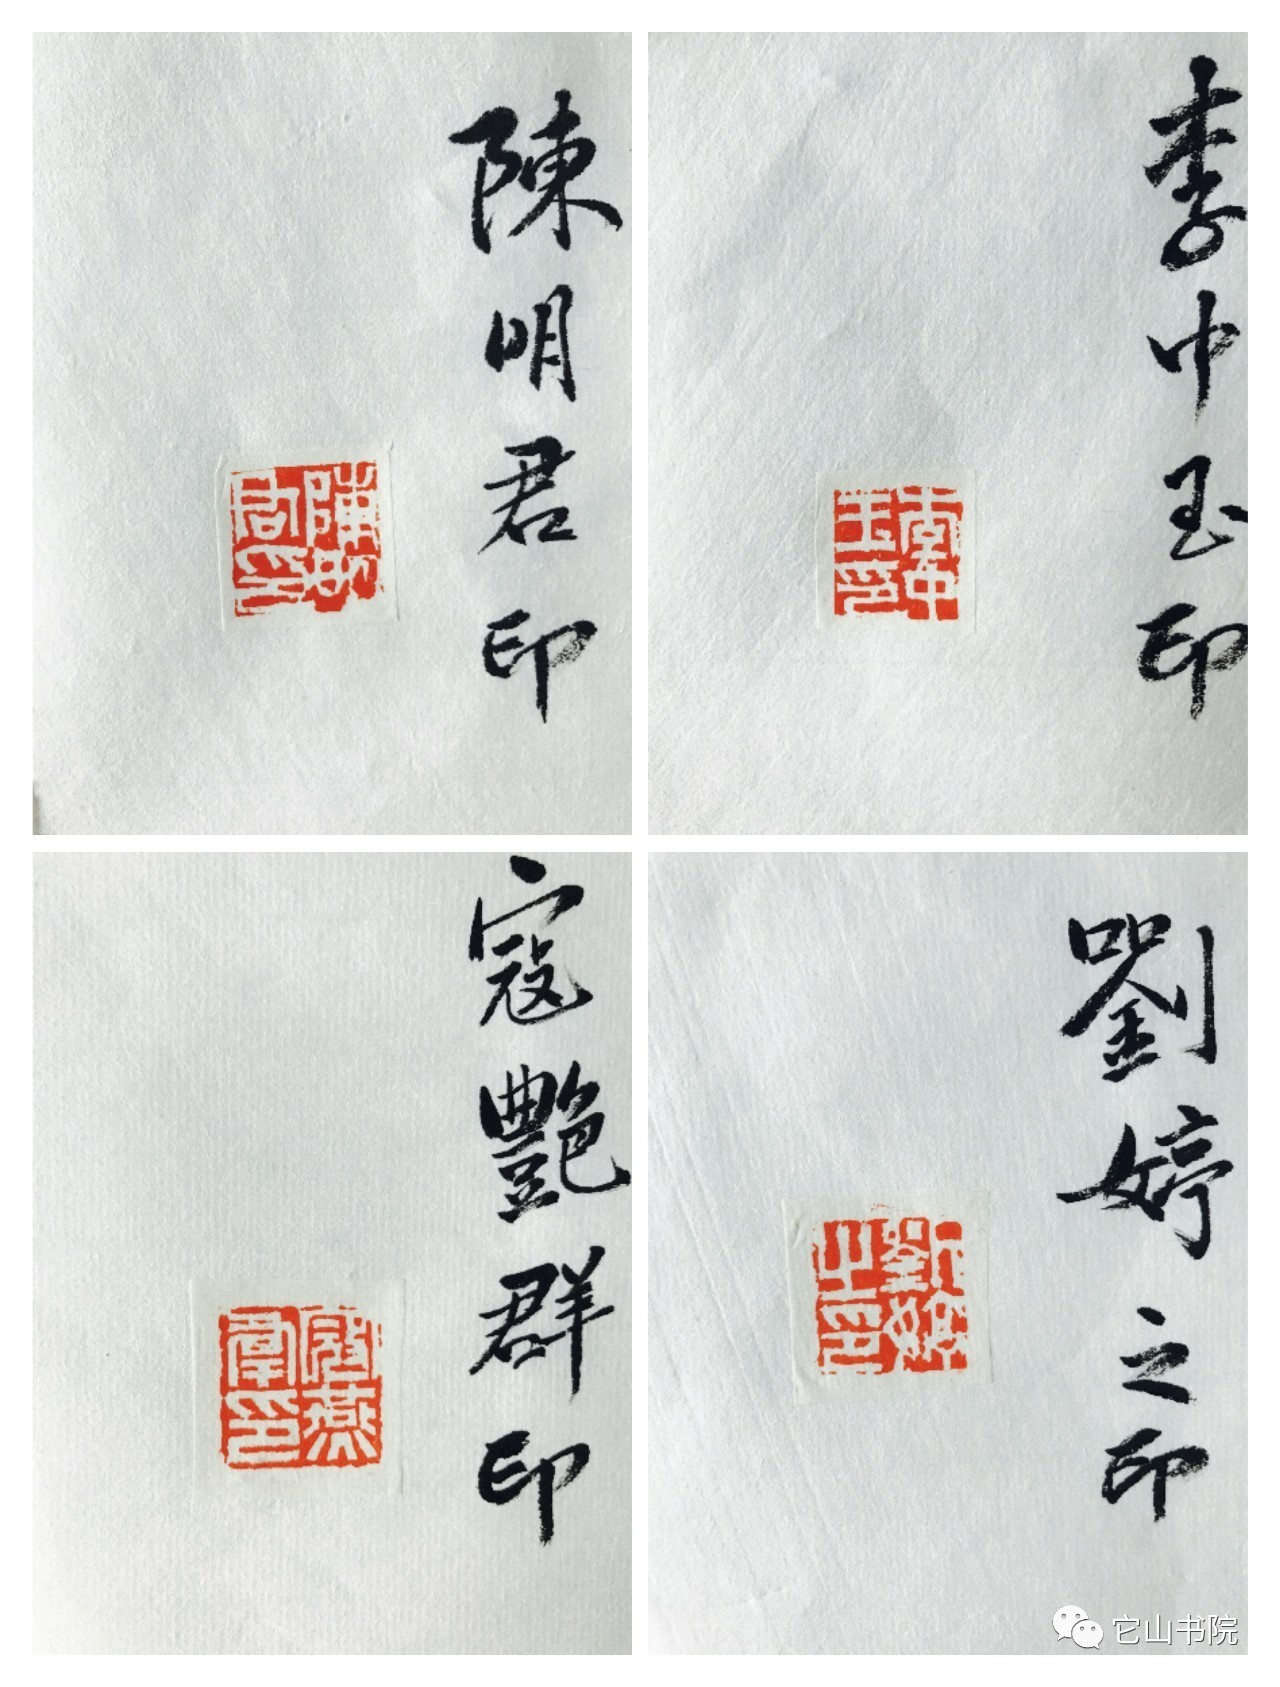 陳明君印
陳明君印
李中玉印
李中玉印
寇艷群印
寇燕群印
劉婷之印
劉婷之印
它山书院